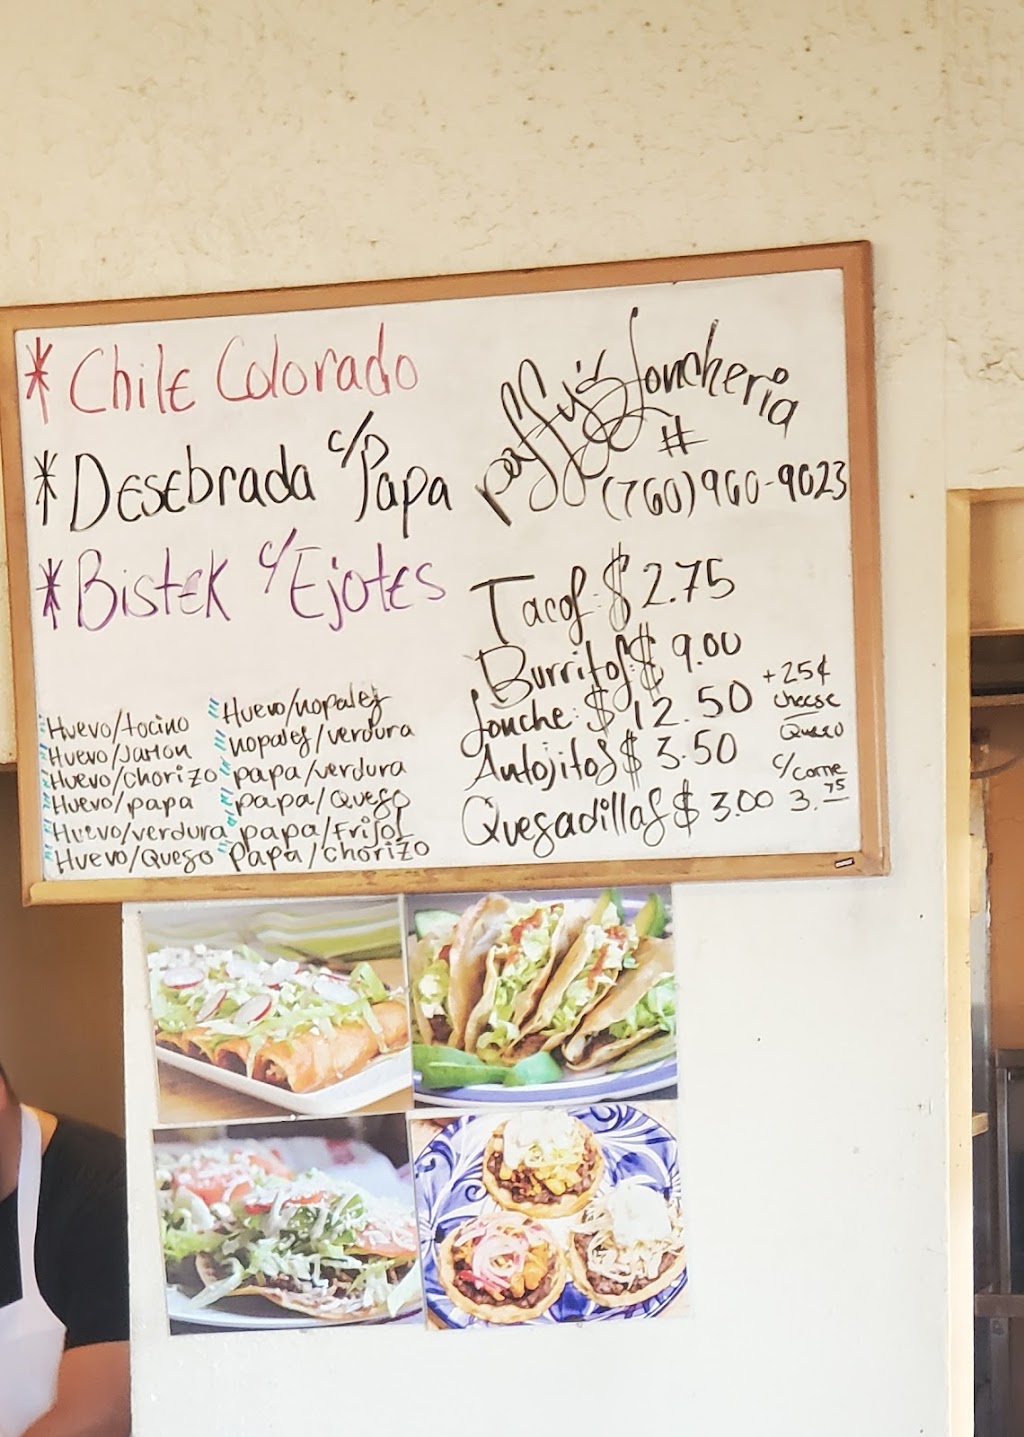 * Chile Colorado
* Desebrada c/Papa
* Bistek c/Ejotes
Huevo/tocino
Huevo/Jamon
Huevo/chorizo
Huevo/papa
Huevo/verdura
Huevo/Queso
Huevo/nopales
nopales/verdura
papa/verdura
papa/Queso
papa/Frijol
papa/chorizo
paffy's loncheria
#
(760)960-9023
Tacos: $2.75
Burritos: $9.00
Lonche: $12.50
Antojitos $3.50
Quesadillas $3.00
+25¢
cheese
Queso
c/carne
3.75